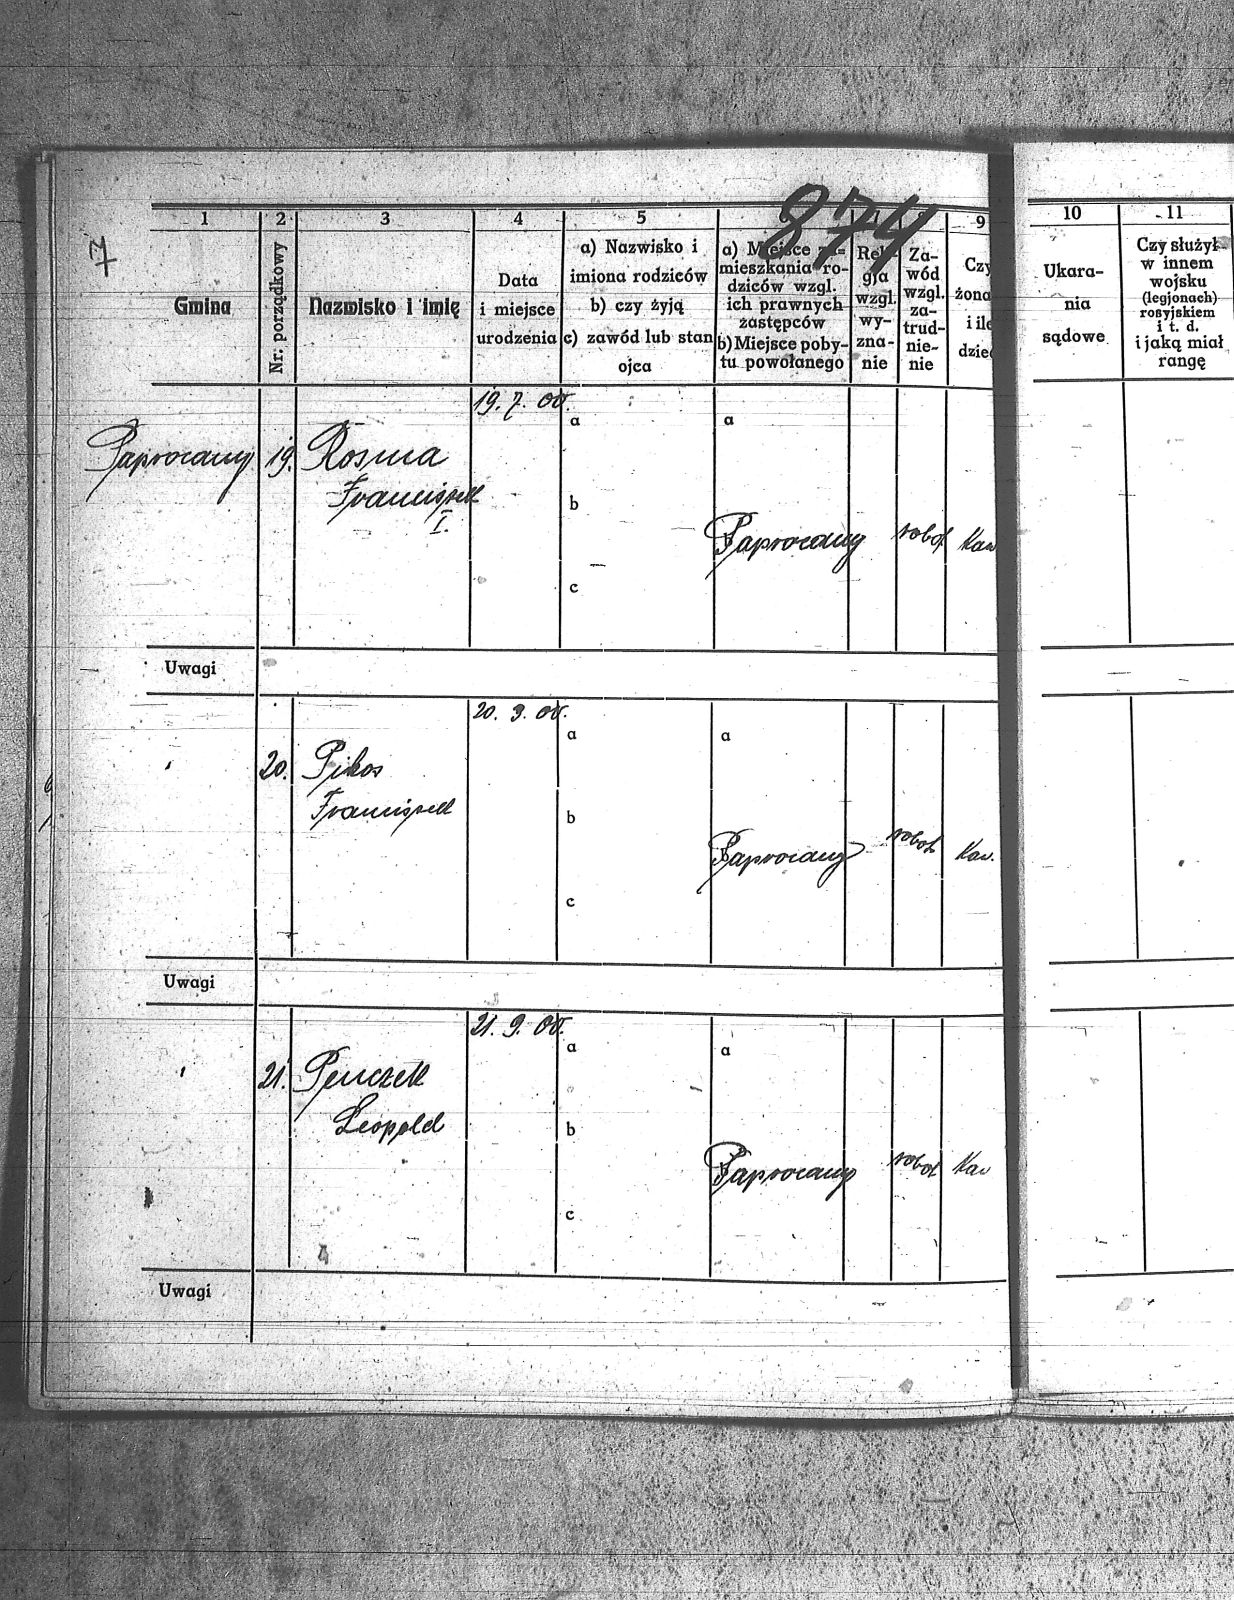 7
874
1
2
3
4
5
9
10
11
Gmina
Nr. porządkowy
Nazwisko i imię
Data
i miejsce
urodzenia
a) Nazwisko i
imiona rodziców
b) czy żyją
c) zawód lub stan
ojca
a) Miejsce za-
mieszkania ro-
dziców wzgl.
ich prawnych
zastępców
b) Miejsce poby-
tu powołanego
Reli-
gja
wzgl.
wy-
zna-
nie
Za-
wód
wzgl.
za-
trud-
nie-
nie
Czy
żona
i ile
dziec
Ukara-
nia
sądowe
Czy służył
w innem
wojsku
(legjonach)
rosyjskiem
i t. d.
i jaką miał
rangę
19. 7. 00.
a
a
Paprocany 19. Rosma
Franciszek
I.
b
Paprocany robot Kaw
c
Uwagi
20. 9. 00.
a
a
20. Pikos
Franciszek
b
Paprocany robot Kaw.
c
Uwagi
21. 9. 00.
a
a
21. Penczek
Leopold
b
Paprocany robot Kaw
c
Uwagi